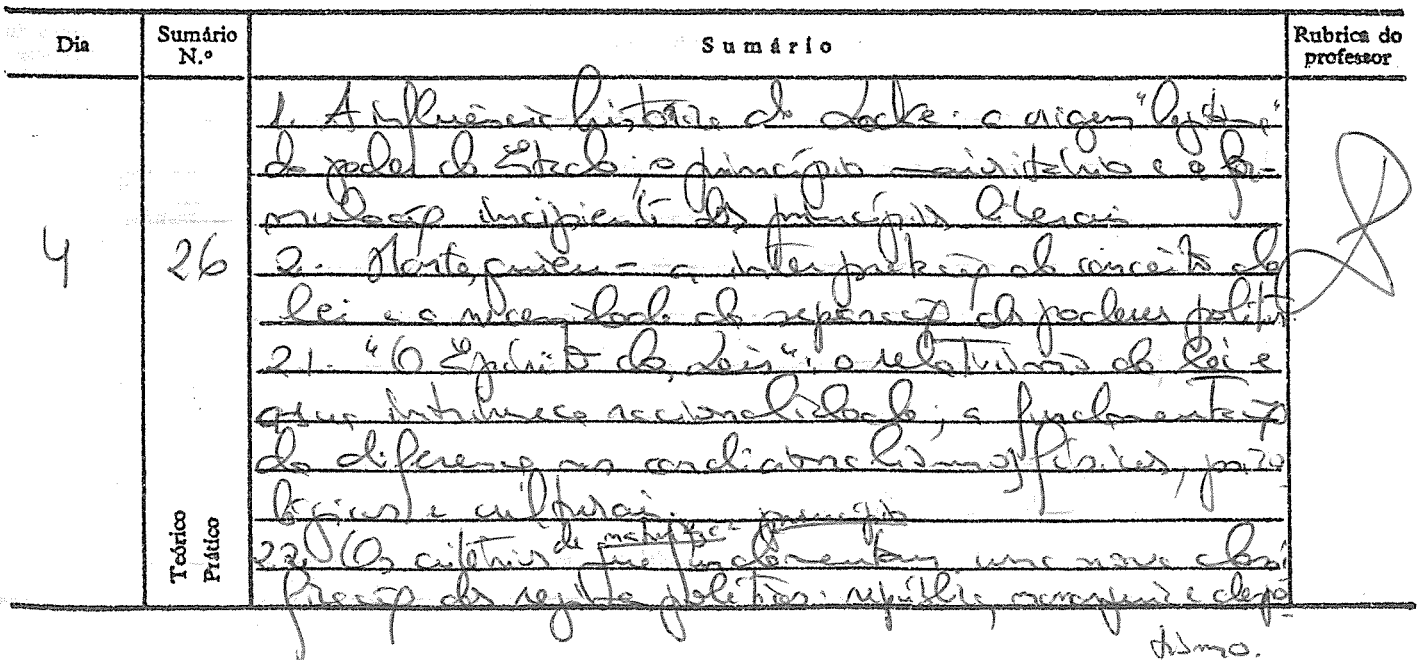 Dia
Sumário N.º
Sumário
Rubrica do professor
4
26
Teórico
Prático
1. A influência histórica de Locke: a origem "legítima"
do poder do Estado; o princípio maioritário e a for-
mulação incipiente dos princípios liberais
2. Montesquieu - a interpretação do conceito de
lei e a necessidade da separação dos poderes polít.
21. "O Espírito das Leis": o relativismo da lei e
a sua intrínseca racionalidade; a fundamentação
da diferença nos condicionalismos físicos, psico
lógicos e culturais.
22. Os critérios de natureza e princípio que fundamentam uma nova classi
ficação dos regimes políticos: república, monarquia e despo
tismo.